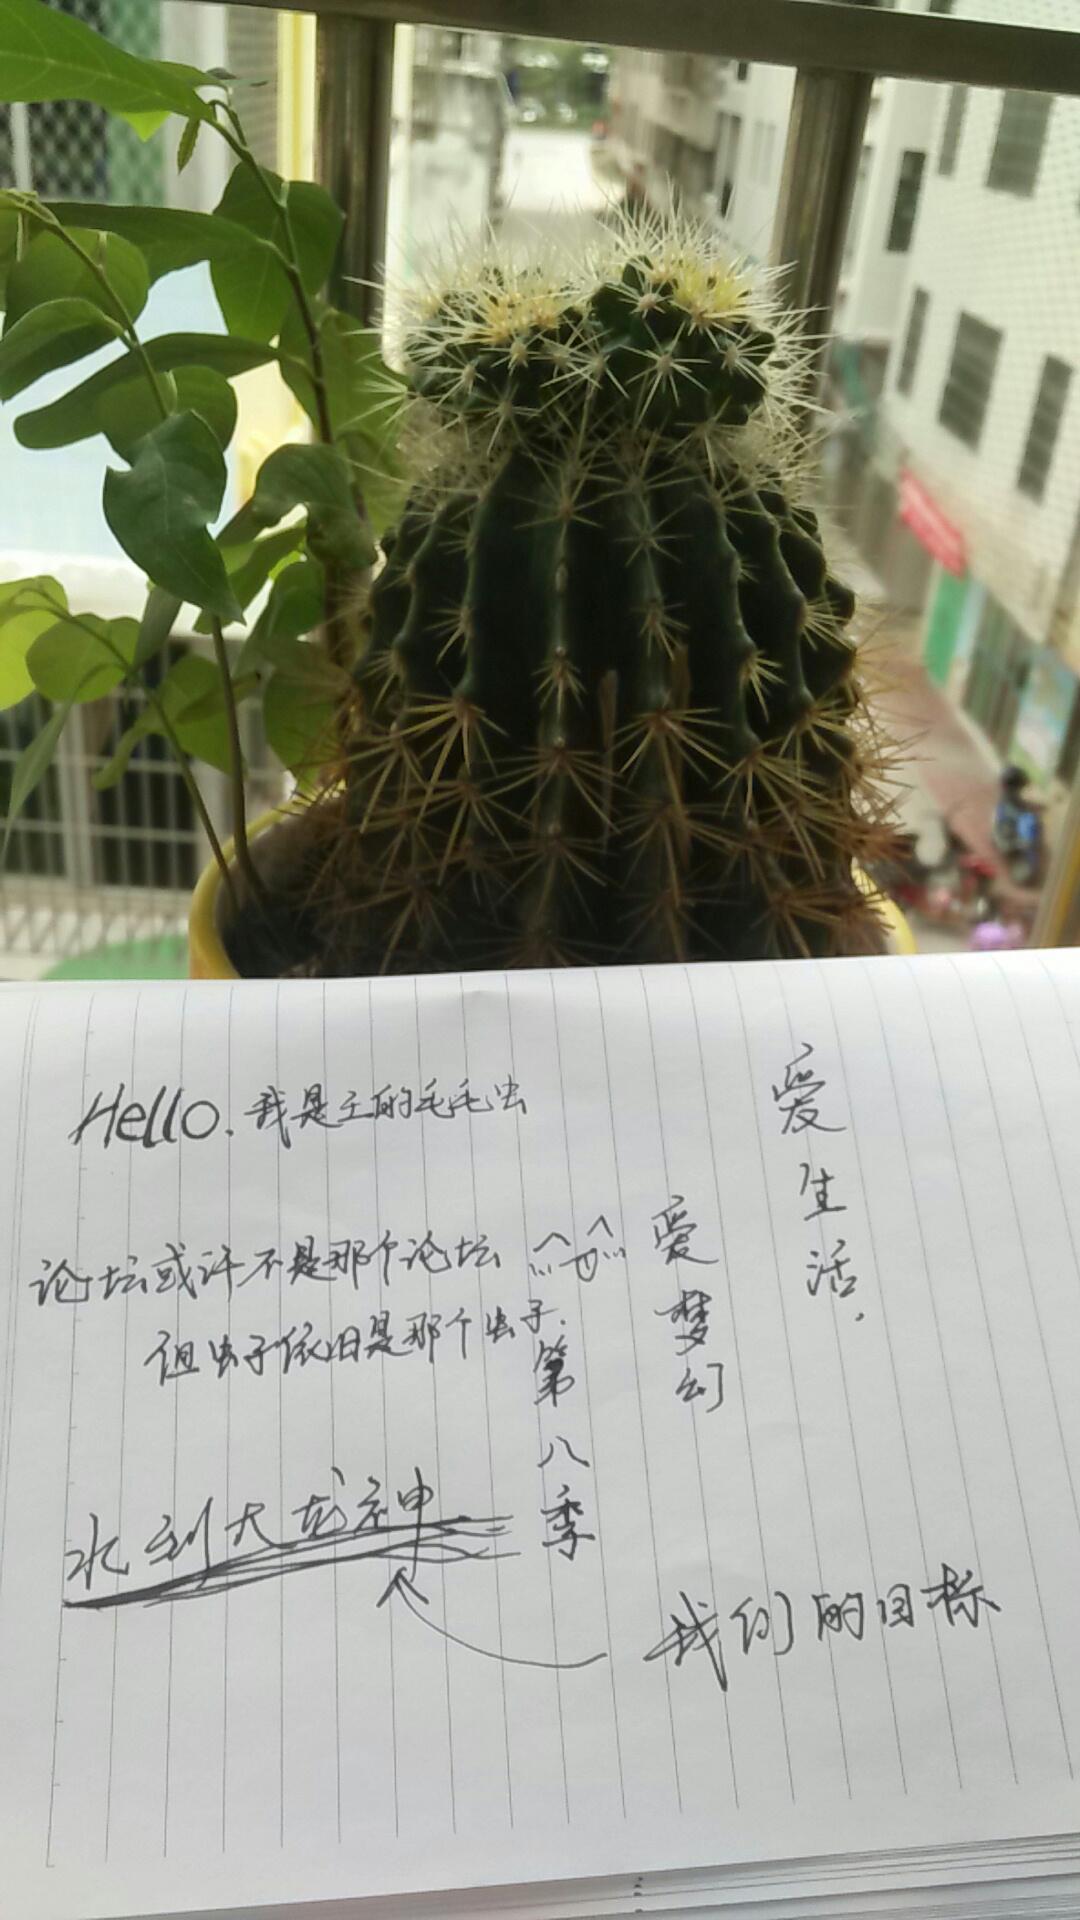 Hello. 我是王的毛毛虫
论坛或许不是那个论坛
但虫子依旧是那个虫子.
爱生活.
爱梦幻
第八季
水利大龙神
我们的目标